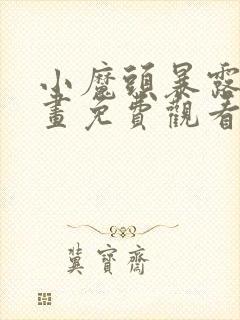 小魔頭暴露
畫免費觀看
冀寶齋